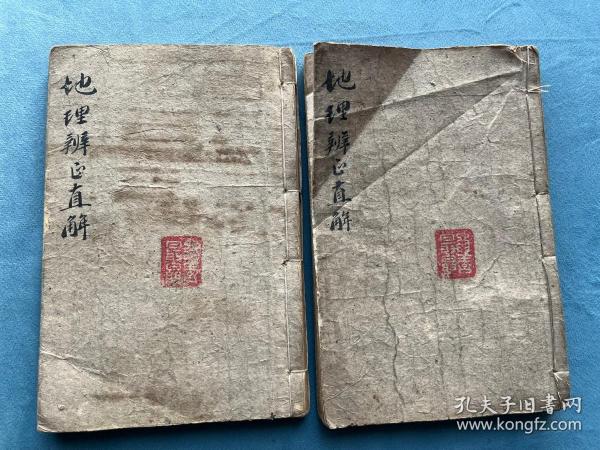 地理辨正直解
地理辨正直解
孔夫子旧书网
www.kongfz.com